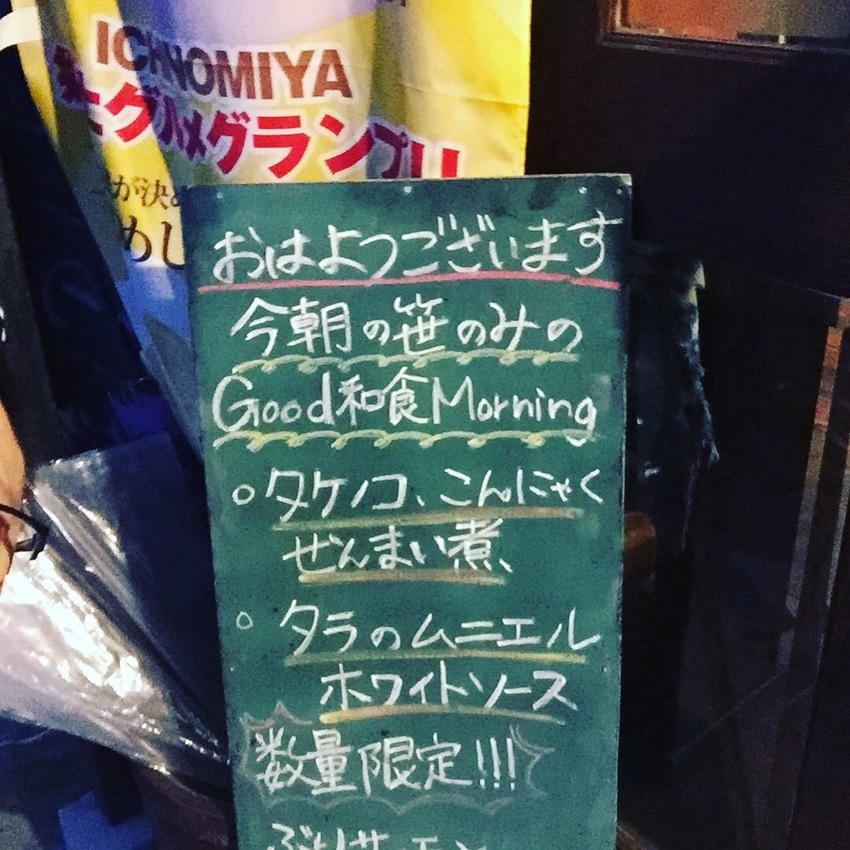 ICHINOMIYA
グルメグランプリ
が決め
めし
おはようございます
今朝の笹のみの
Good和食Morning
○タケノコ、こんにゃく
ぜんまい煮、
○タラのムニエル
ホワイトソース
数量限定!!!